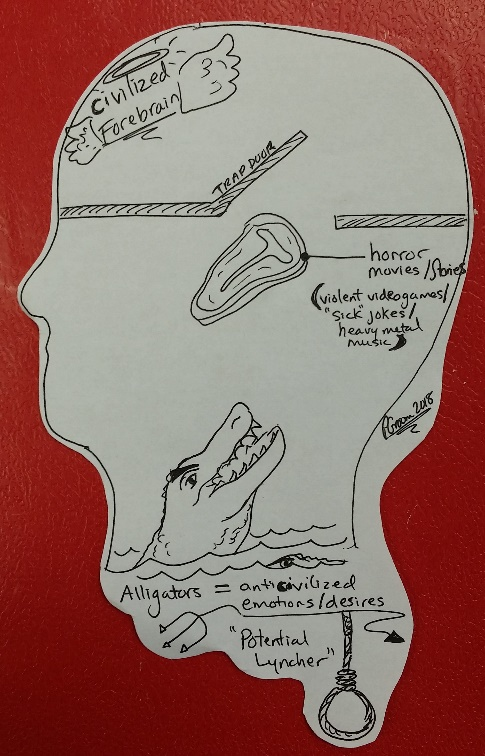 Civilized
Forebrain
TRAP DOOR
horror
movies/Stories
(violent videogames/
"sick" jokes/
heavy metal
music)
2018
Alligators = anticivilized
emotions/desires
"Potential
Lyncher"